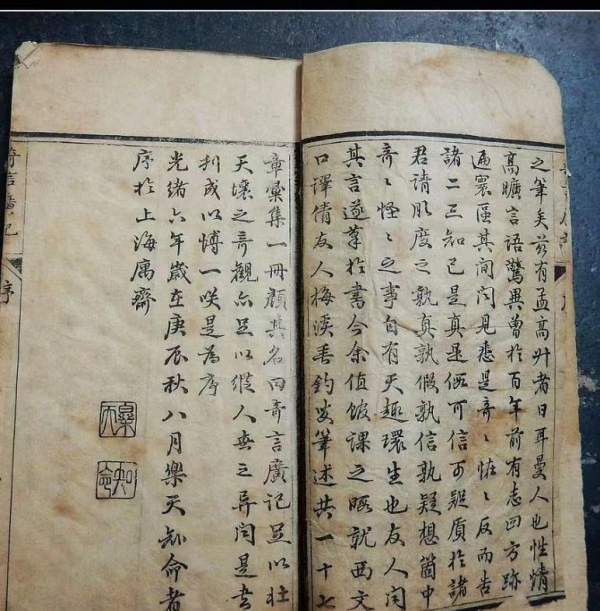 之筆矣茲有孟高升者日耳曼人也性情
高曠言語驚異曾於百年前有志四方跡
遍寰區其間聞見悉是奇〻怪〻反而告
諸二三知己是真是假可信可疑質於諸
君請忖度之孰真孰假孰信孰疑想箇中
奇〻怪〻之事自有天趣環生也友人聞
其言遂草於書今余值館課之暇就西文
口譯倩友人梅溪垂釣叟筆述共一十七
章彙集一冊顏其名曰奇言廣記足以壯
天壤之奇觀亦足以縱人世之異聞是書
刋成以博一咲是為序
光緒六年歲在庚辰秋八月樂天知命者
序於上海寓齋
樂天
知命
奇言廣記 序